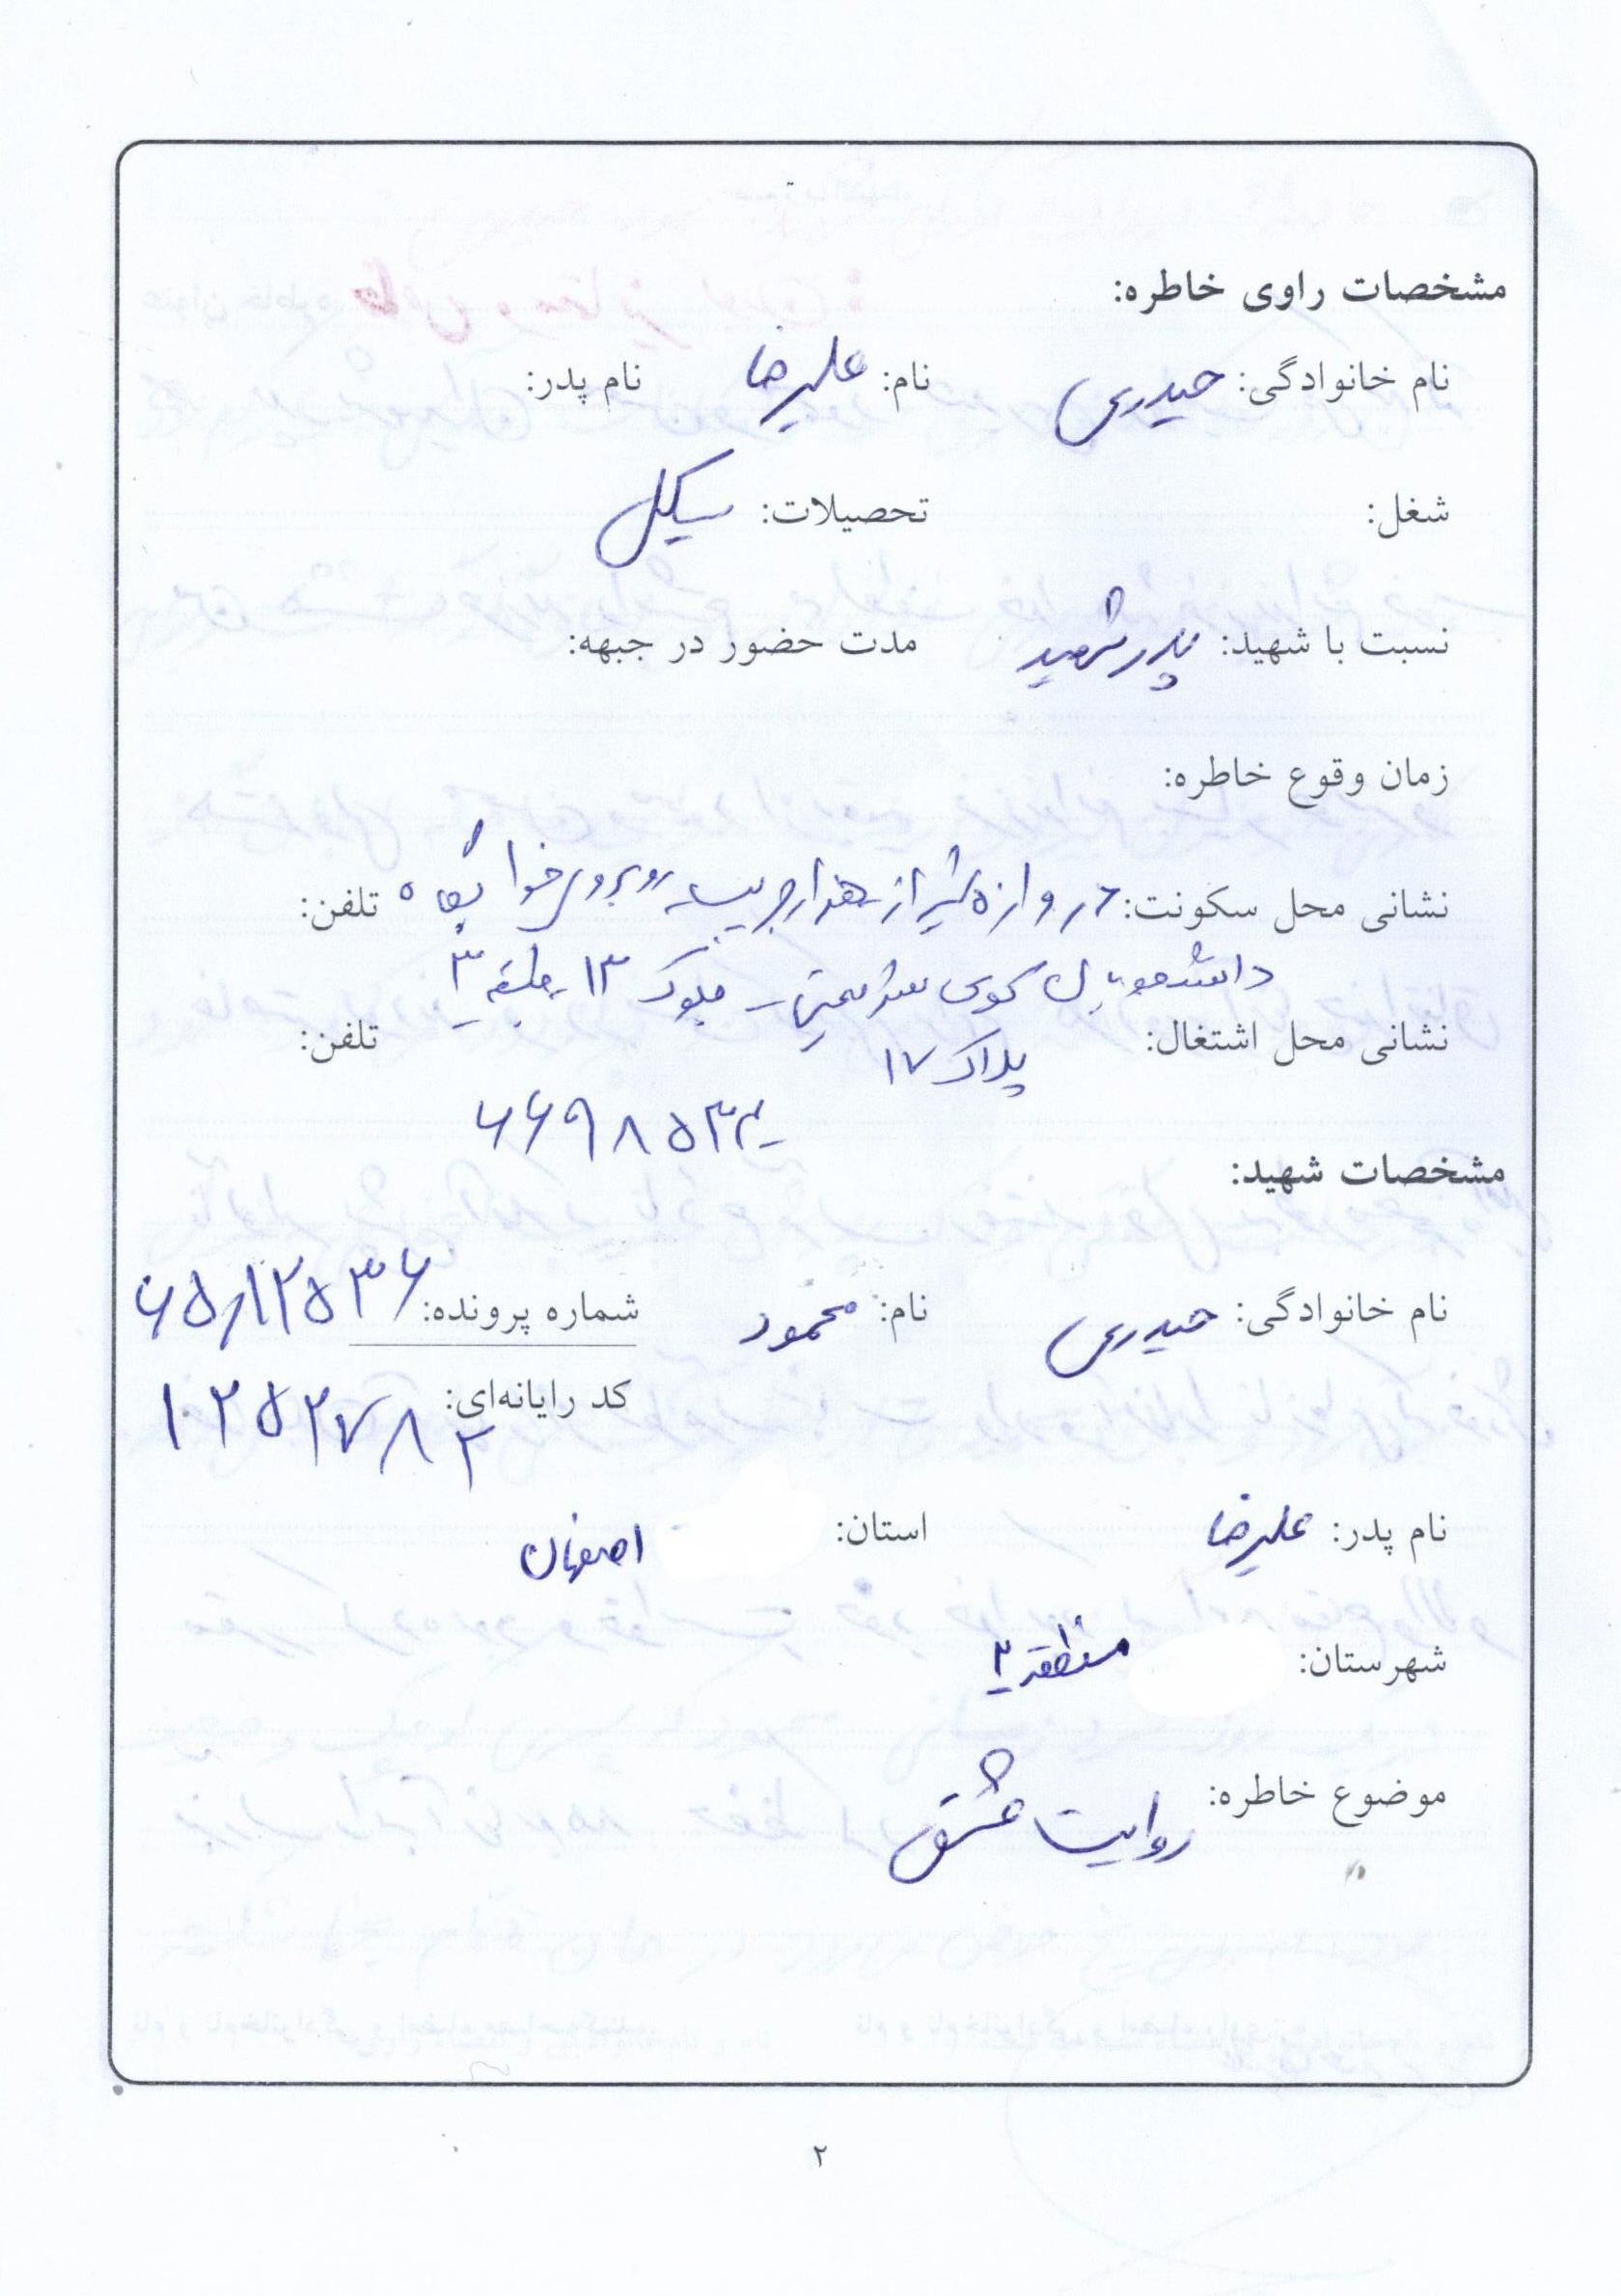 مشخصات راوی خاطره:
نام خانوادگی: حیدری نام: علیرضا نام پدر:
شغل: تحصیلات: سیکل
نسبت با شهید: پدر شهید مدت حضور در جبهه:
زمان وقوع خاطره:
نشانی محل سکونت: دروازه شیراز هزار جریب روبروی خوابگاه تلفن:
دانشجویان کوی بلوک ۱۳ طبقه ۳
نشانی محل اشتغال: پلاک ۱۷ تلفن:
۶۶۹۸۵۳۲
مشخصات شهید:
نام خانوادگی: حیدری نام: محمود شماره پرونده: ۶۵/۱۲۵۳۶
کد رایانه‌ای: ۱۰۲۵۲۷۸۲
نام پدر: علیرضا استان: اصفهان
شهرستان: منطقه ۲
موضوع خاطره: روایت عشق
۲